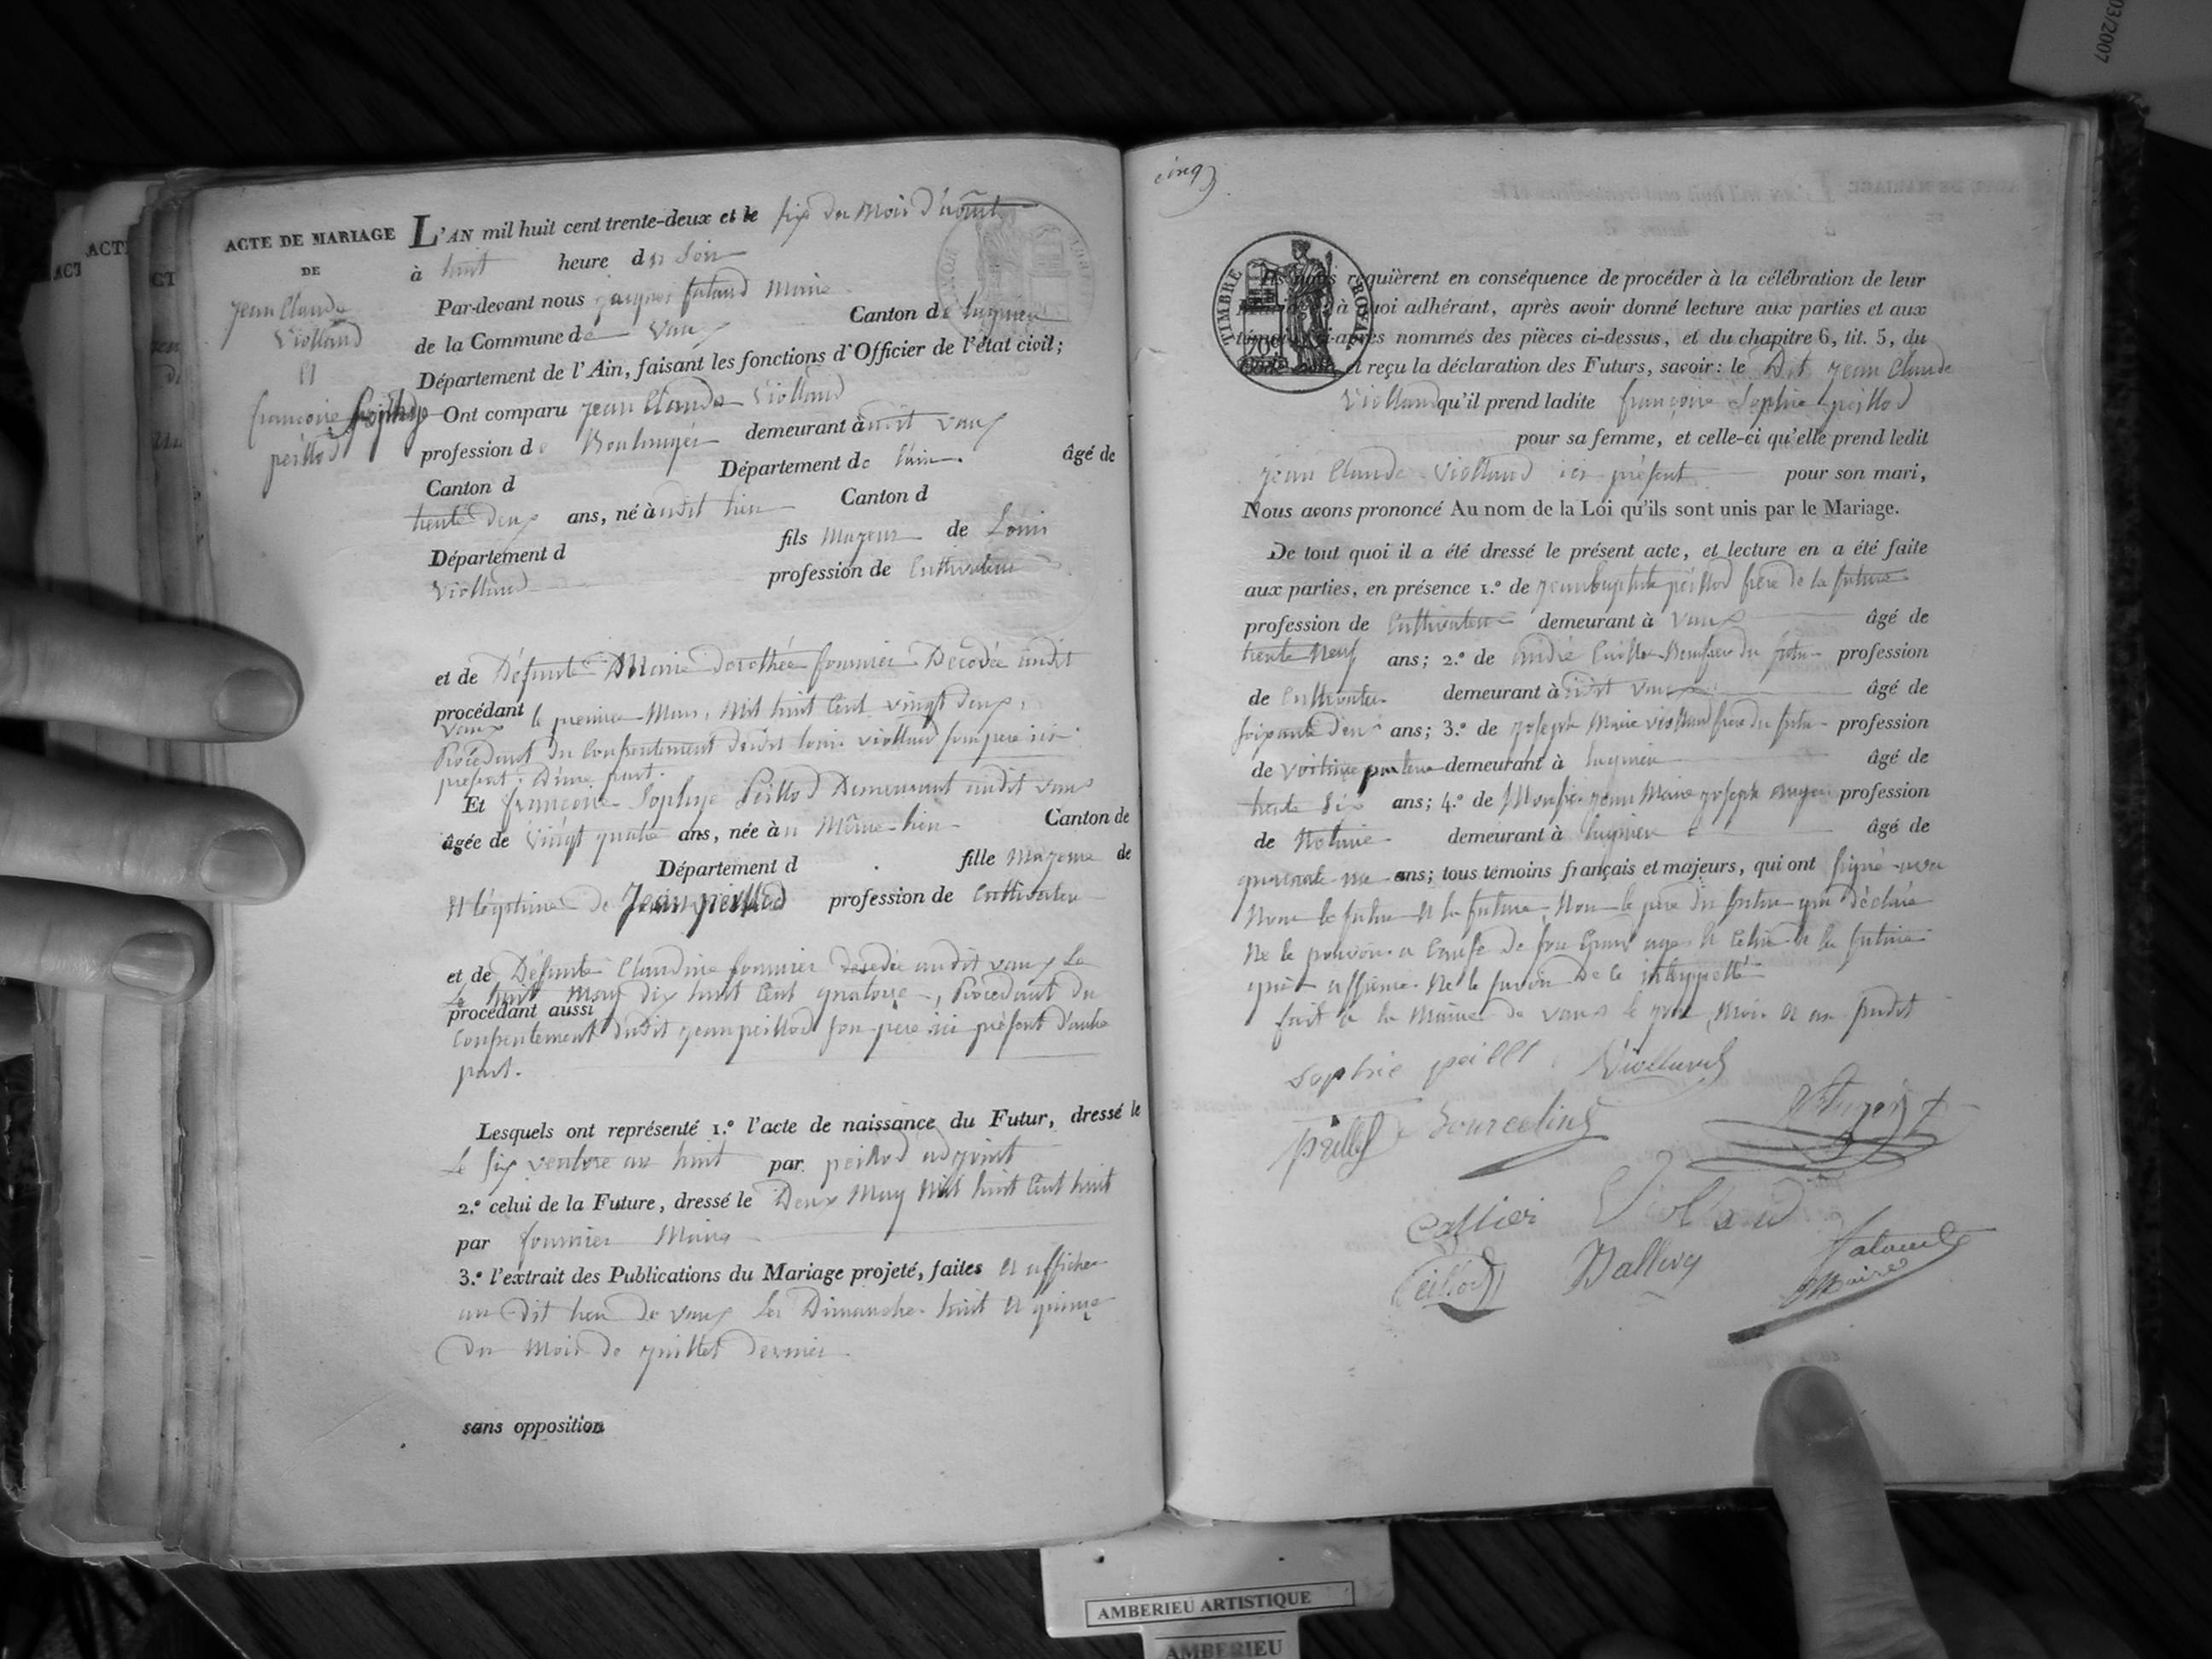 03/2007
ACTE DE MARIAGE
DE
jean Claude
Violland
Et
françoise Sophye
peillod
L'AN mil huit cent trente-deux et le six du mois d'aôut
à huit heure du soir
Par-devant nous jacques falaud Maire
de la Commune de Vaux Canton de lagnieu
Département de l'Ain, faisant les fonctions d'Officier de l'état civil;
Ont comparu jean Claude Violland
profession de Boulanger demeurant à udit vaux
Canton d Département de l'ain. âgé de
trente deux ans, né à udit lieu Canton d
Département d fils Majeur de Louis
Violland profession de Cultivateur
et de Défunte Marie dorothée fournier Décédée audit
vaux le premier Mars, Mil huit Cent vingt deux,
procédant
Procédant du Consentement dudit louis violland son pere ici
présent, D'une part.
Et françoise Sophye Peillod Demeurant audit vaux
âgée de vingt quatre ans, née à u Même lieu Canton de
Département d fille Majeure de
Et légitime de Jean peillod profession de Cultivateur
et de Défunte Claudine fournier décédée audit vaux Le
Le huit May dix huit Cent quatorze, Procédant du
procédant aussi
Consentement dudit jean peillod son père ici présent d'autre
part.
Lesquels ont représenté 1.º l'acte de naissance du Futur, dressé le
Le six ventose an huit par peillod adjoint
2.º celui de la Future, dressé le Deux May Mil huit Cent huit
par fournier Maire
3.º l'extrait des Publications du Mariage projeté, faites et affichées
au dit lieu de vaux les Dimanches huit et quinze
Du mois de juillet dernier
sans opposition
cinq
TIMBRE ROYAL
Ils nous requièrent en conséquence de procéder à la célébration de leur
Mariage; à quoi adhérant, après avoir donné lecture aux parties et aux
témoins ci-après nommés des pièces ci-dessus, et du chapitre 6, tit. 5, du
Code civil, et reçu la déclaration des Futurs, savoir: le Dit jean Claude
Violland qu'il prend ladite françoise Sophie peillod
pour sa femme, et celle-ci qu'elle prend ledit
jean Claude Violland ici présent pour son mari,
Nous avons prononcé Au nom de la Loi qu'ils sont unis par le Mariage.
De tout quoi il a été dressé le présent acte, et lecture en a été faite
aux parties, en présence 1.º de jean baptiste peillod frère de la future
profession de Cultivateur demeurant à Vaux âgé de
trente neuf ans; 2.º de andré Beaufrere du futur profession
de Cultivateur demeurant à udit Vaux âgé de
soixante deux ans; 3.º de joseph Marie violland frere du futur profession
de demeurant à lagnieu âgé de
trente six ans; 4.º de Monsieur jean Marie joseph profession
de Notaire demeurant à lagnieu âgé de
quarante ans; tous témoins français et majeurs, qui ont signé avec
Nous le futur et la future, Non le père du futur qui a déclaré
Ne le pouvoir a Cause de son Grand age et Celui de la future
qui a affirmé Ne le savoir De ce interpellé
fait à la Mairie de vaux le jour, Mois et an susdit
Sophie peillt Violland
peillod
Violland
peillod Dallery falaud
Maire
AMBERIEU ARTISTIQUE
AMBERIEU